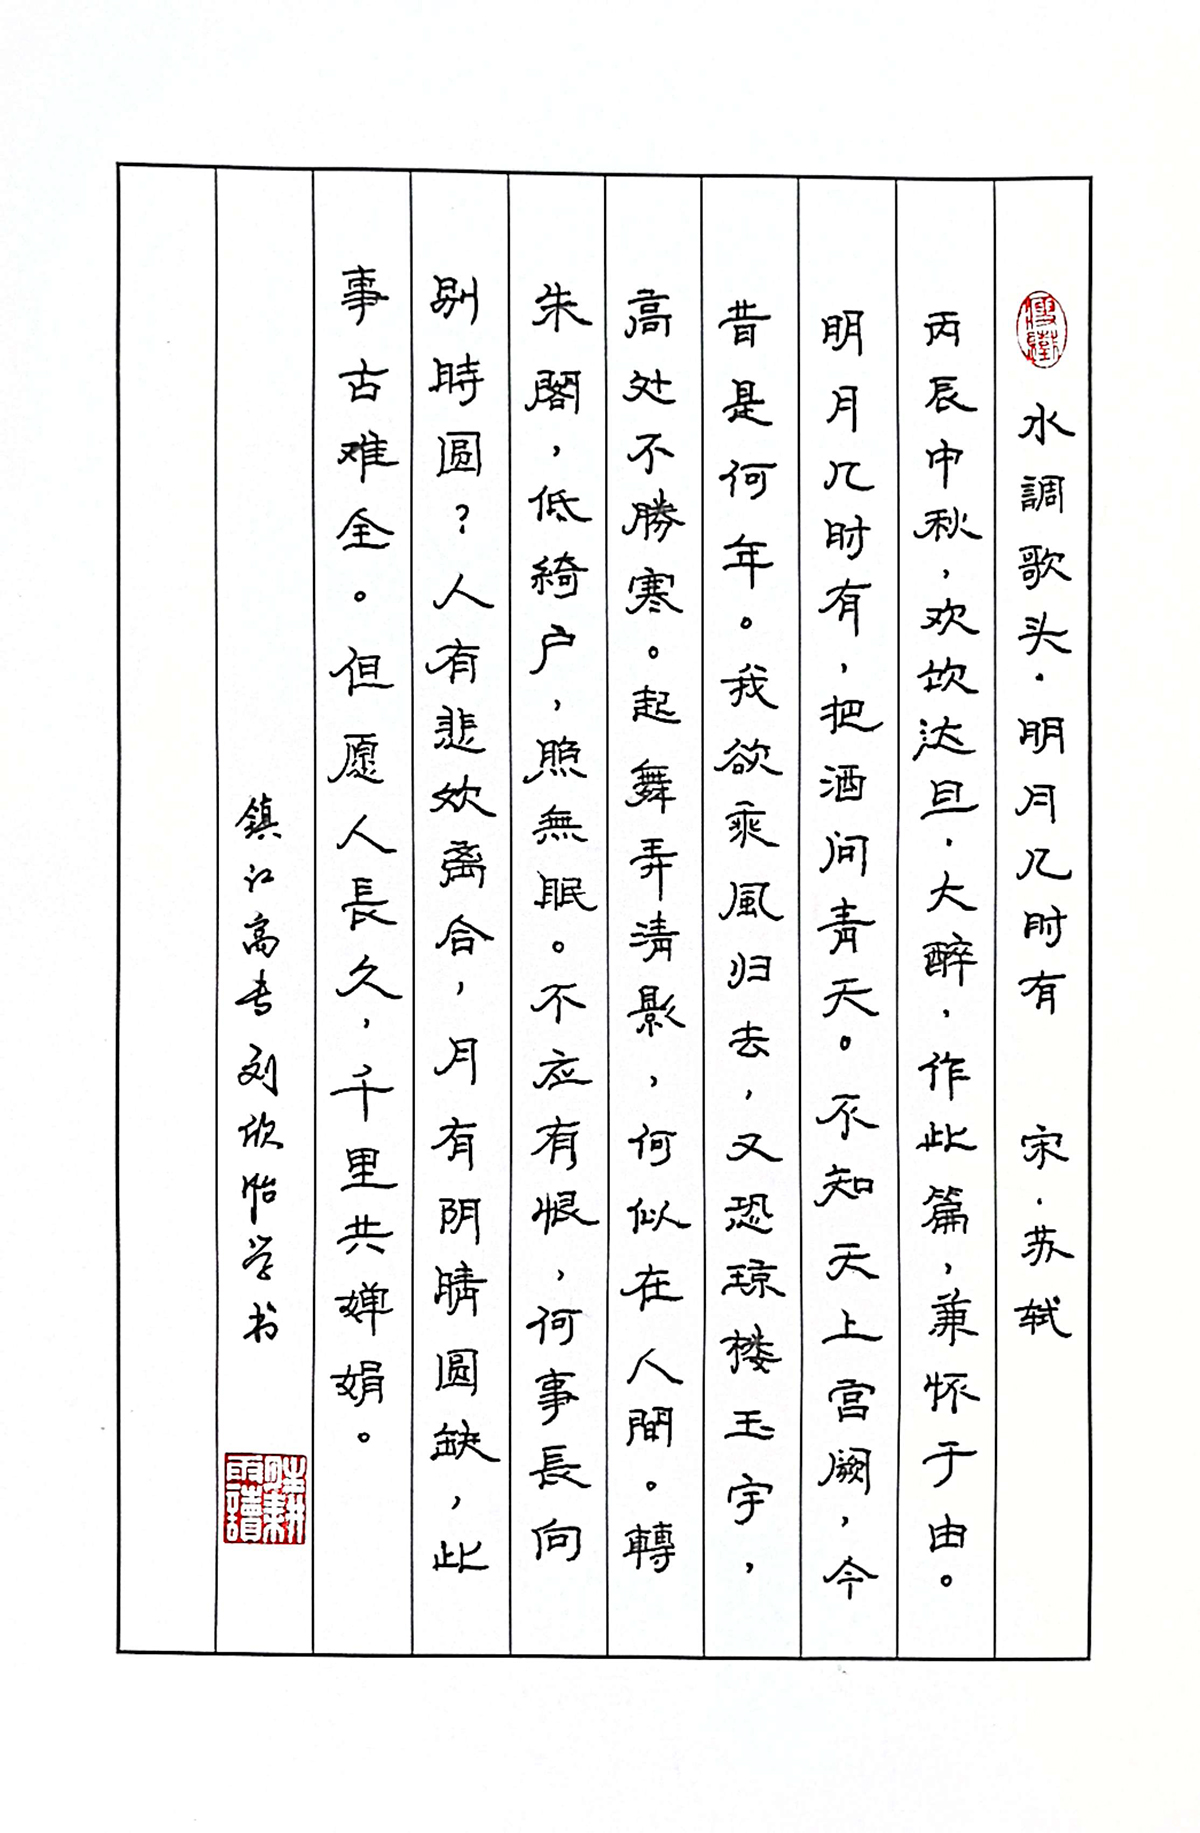 水調歌头·明月几时有 宋·苏轼
丙辰中秋,欢饮达旦.大醉,作此篇,兼怀于由。
明月几时有,把酒问青天。不知天上宫阙,今
昔是何年。我欲乘風归去,又恐琼楼玉宇,
高处不勝寒。起舞弄清影,何似在人間。轉
朱閣,低綺户,照無眠。不应有恨,何事長向
别時圆?人有悲欢离合,月有阴晴圆缺,此
事古难全。但愿人長久,千里共婵娟。
鎮江高专刘欣怡学书
晴耕
雨讀